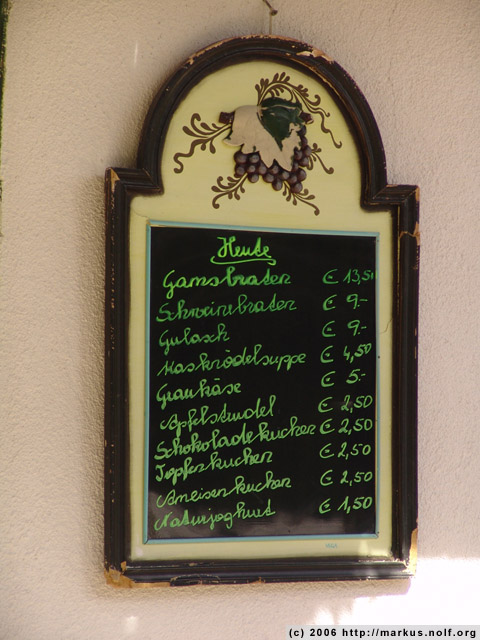 Heute
Gamsbraten € 13,50
Schweinsbraten € 9.-
Gulasch € 9.-
Kasknödelsuppe € 4,50
Graukäse € 5.-
Apfelstrudel € 2,50
Schokoladekuchen € 2,50
Topfenkuchen € 2,50
Ameisenkuchen € 2,50
Naturjoghurt € 1,50
(c) 2006 http://markus.nolf.org